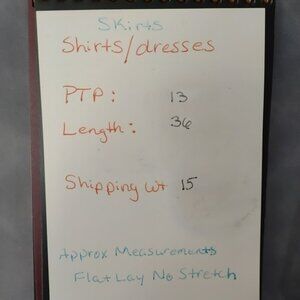 Skirts
Shirts/dresses
PTP: 13
Length: 36
Shipping wt 15
Approx Measurements
Flat Lay No Stretch